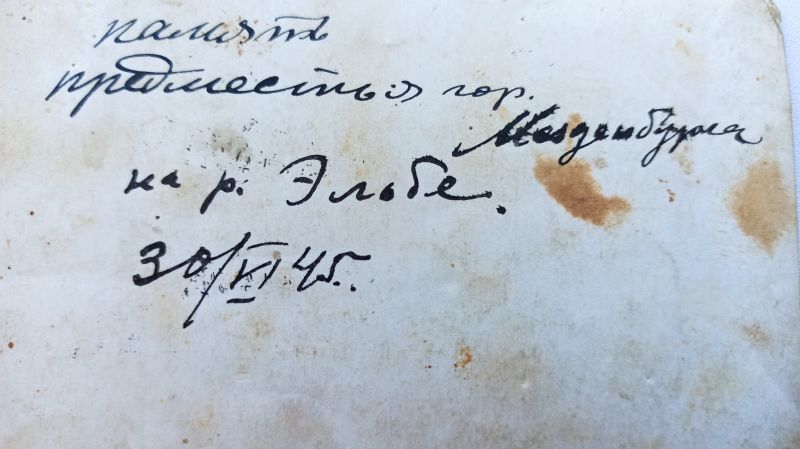 память
предместья гор.
Магденбурга
на р. Эльбе.
30/VI 45г.